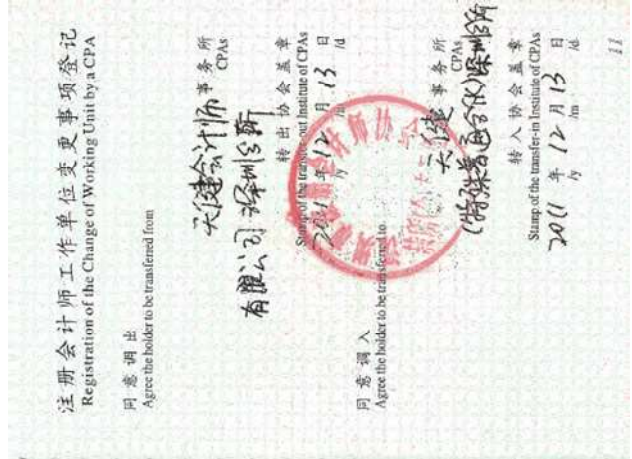 注册会计师工作单位变更事项登记
Registration of the Change of Working Unit by a CPA
同意调出
Agree the holder to be transferred from
天健会计师
事务所
CPAs
有限公司深圳分所
转出协会盖章
Stamp of the transfer-out Institute of CPAs
2011 年 12 月 13 日
/y /m /d
同意调入
Agree the holder to be transferred to
天健
事务所
CPAs
(特殊普通合伙)深圳分所
转入协会盖章
Stamp of the transfer-in Institute of CPAs
2011 年 12 月 13 日
/y /m /d
11